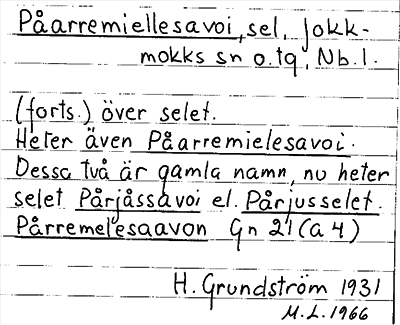 Påarremiellesavoi, sel, Jokk-
mokks sn o. tg, Nb. l.
(forts.) över selet.
Heter även Påarremielesavoi.
Dessa två är gamla namn, nu heter
selet Pårjåssavoi el. Pårjusselet.
Pårremelesaavon Gn 21 (a 4)
H. Grundström 1931
M.L. 1966